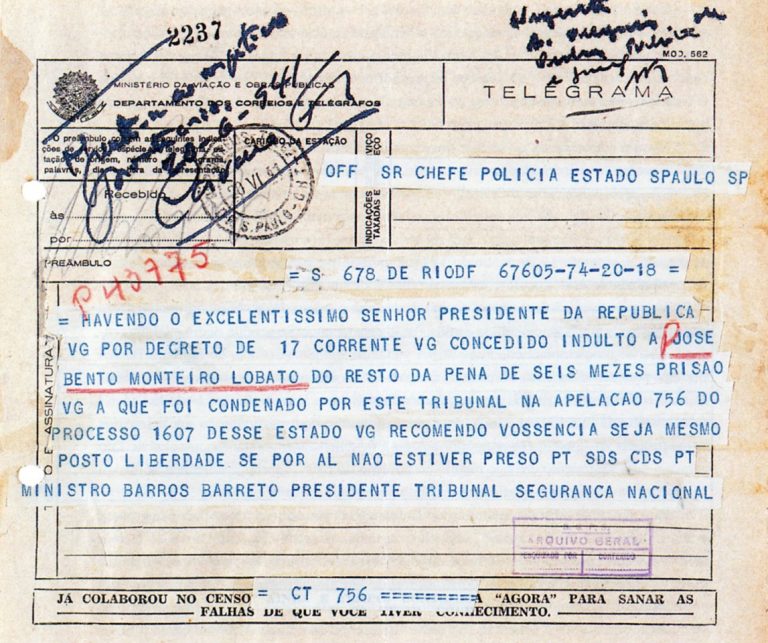 2237
MOD. 562
MINISTÉRIO DA VIAÇÃO E OBRAS PÚBLICAS
DEPARTAMENTO DOS CORREIOS E TELÉGRAFOS
TELEGRAMA
20-6-941
O preâmbulo contém as seguintes indicações de serviço: espécie do telegrama, estação de origem, número do telegrama, palavras, data e hora da apresentação
CARIMBO DA ESTAÇÃO
20 VI 41
S. PAULO
INDICAÇÕES DE SERVIÇO TAXADAS
OFF SR CHEFE POLICIA ESTADO SPAULO SP
Recebido
às
por
PREÂMBULO
P 40775
= S 678 DE RIODF 67605-74-20-18 =
E ASSINATURA
= HAVENDO O EXCELENTISSIMO SENHOR PRESIDENTE DA REPUBLICA
VG POR DECRETO DE 17 CORRENTE VG CONCEDIDO INDULTO A JOSE
BENTO MONTEIRO LOBATO DO RESTO DA PENA DE SEIS MEZES PRISAO
VG A QUE FOI CONDENADO POR ESTE TRIBUNAL NA APELACAO 756 DO
PROCESSO 1607 DESSE ESTADO VG RECOMENDO VOSSENCIA SEJA MESMO
POSTO LIBERDADE SE POR AL NAO ESTIVER PRESO PT SDS CDS PT
MINISTRO BARROS BARRETO PRESIDENTE TRIBUNAL SEGURANCA NACIONAL
ARQUIVO GERAL
= CT 756 =========
JÁ COLABOROU NO CENSO A "AGORA" PARA SANAR AS
FALHAS DE QUE VOCÊ TIVER CONHECIMENTO.